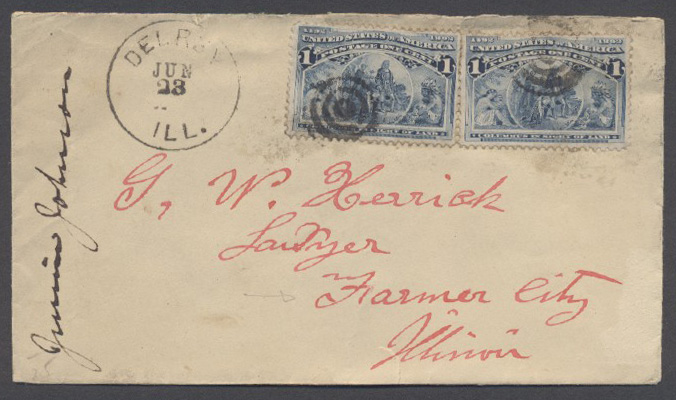 DELRAY
JUN
23
ILL.
1492 1892
UNITED STATES OF AMERICA
POSTAGE ONE CENT
1 1
OF LAND
1492 1892
UNITED STATES OF AMERICA
POSTAGE ONE CENT
1 1
COLUMBUS IN SIGHT OF LAND
G. W. Herrick
Lawyer
Farmer City
Illinois
Johnson